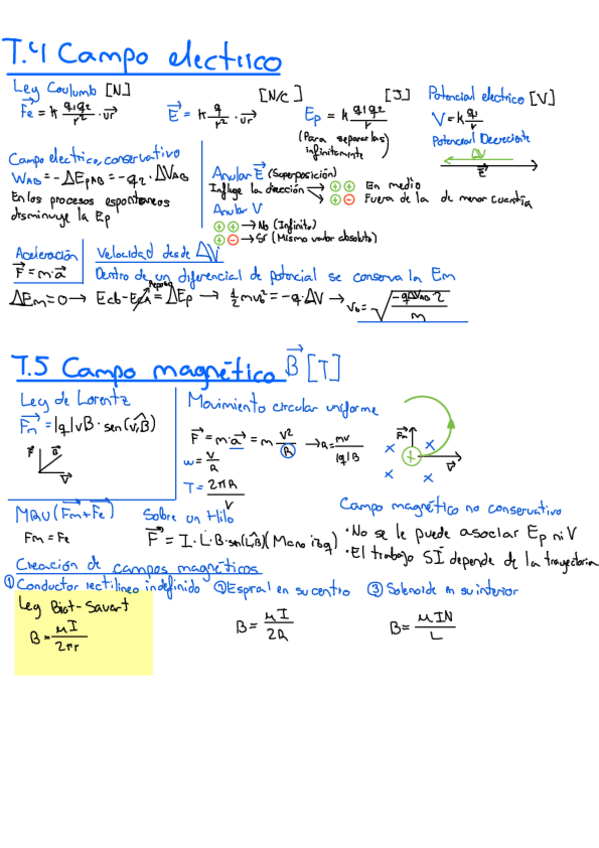 T.4 Campo electrico
Ley Coulumb [N]
Fe = k q1q2/r² · ur
[N/C]
E = k q/r² · ur
[J]
Ep = k q1q2/r
(Para separarlas infinitamente)
Potencial electrico [V]
V = k q/r
Potencial Decreciente
ΔV
E
Campo electrico, conservativo
WAB = -ΔEpAB = -q2 · ΔVAB
En los procesos espontaneos
disminuye la Ep
Anular E (Superposición)
Influye la dirección → ++ En medio
→ +- Fuera de la de menor cuantía
Anular V
++ → No (Infinito)
+- → Sí (Mismo valor absoluto)
Aceleración
F = m·a
Velocidad desde ΔV
Dentro de un diferencial de potencial se conserva la Em
ΔEm=0 → Ecb - Eca = ΔEp → 1/2 mvb² = -q·ΔV → vb = √(-qΔVAB 2 / m)
Reposo
T.5 Campo magnético B [T]
Ley de Lorentz
Fm = |q|vB · sen(v,B)
F
B
V
Movimiento circular uniforme
F = m·a = m v²/R → R = mv/|q|B
w = v/R
T = 2πR/V
Fm
x
x
+
V
x
x
MRU (Fm+Fe)
Fm = Fe
Sobre un Hilo
F = I·L·B·sen(L,B)(Mano izq)
Campo magnético no conservativo
·No se le puede asociar Ep ni V
·El trabajo SÍ depende de la trayectoria
Creación de campos magneticos
① Conductor rectilineo indefinido ② Espiral en su centro ③ Solenoide en su interior
Ley Biot-Savart
B = μI/2πr
B = μI/2R
B = μIN/L